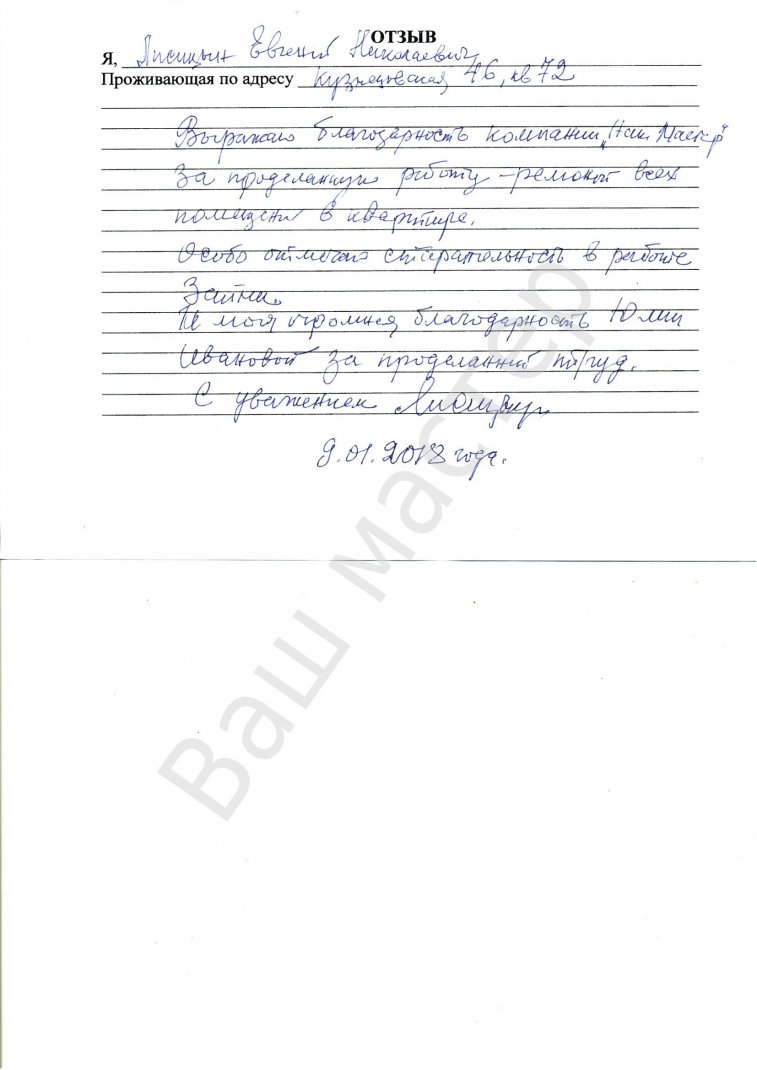 ОТЗЫВ
Я, Лисицын Евгений Николаевич
Проживающая по адресу Кузнецовская 46, кв 72
Выражаю благодарность компании „Наш Мастер"
За проделанную работу – ремонт всех
помещений в квартире.
Особо отмечаю старательность в работе
И моя огромная благодарность Юлии
Ивановой за проделанный труд.
С уважением
9.01.2018 года.
Ваш мастер